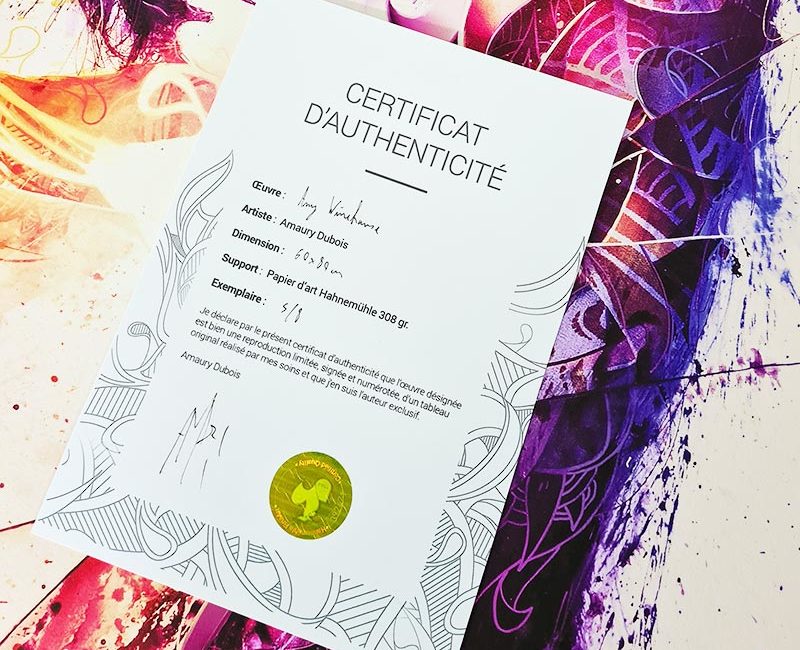 CERTIFICAT
D'AUTHENTICITÉ
Œuvre : Amy Winehouse
Artiste : Amaury Dubois
Dimension : 60x80cm
Support : Papier d'art Hahnemühle 308 gr.
Exemplaire : 5/8
Je déclare par le présent certificat d'authenticité que l'œuvre désignée
est bien une reproduction limitée, signée et numérotée, d'un tableau
original réalisé par mes soins et que j'en suis l'auteur exclusif.
Amaury Dubois
Certified Quality